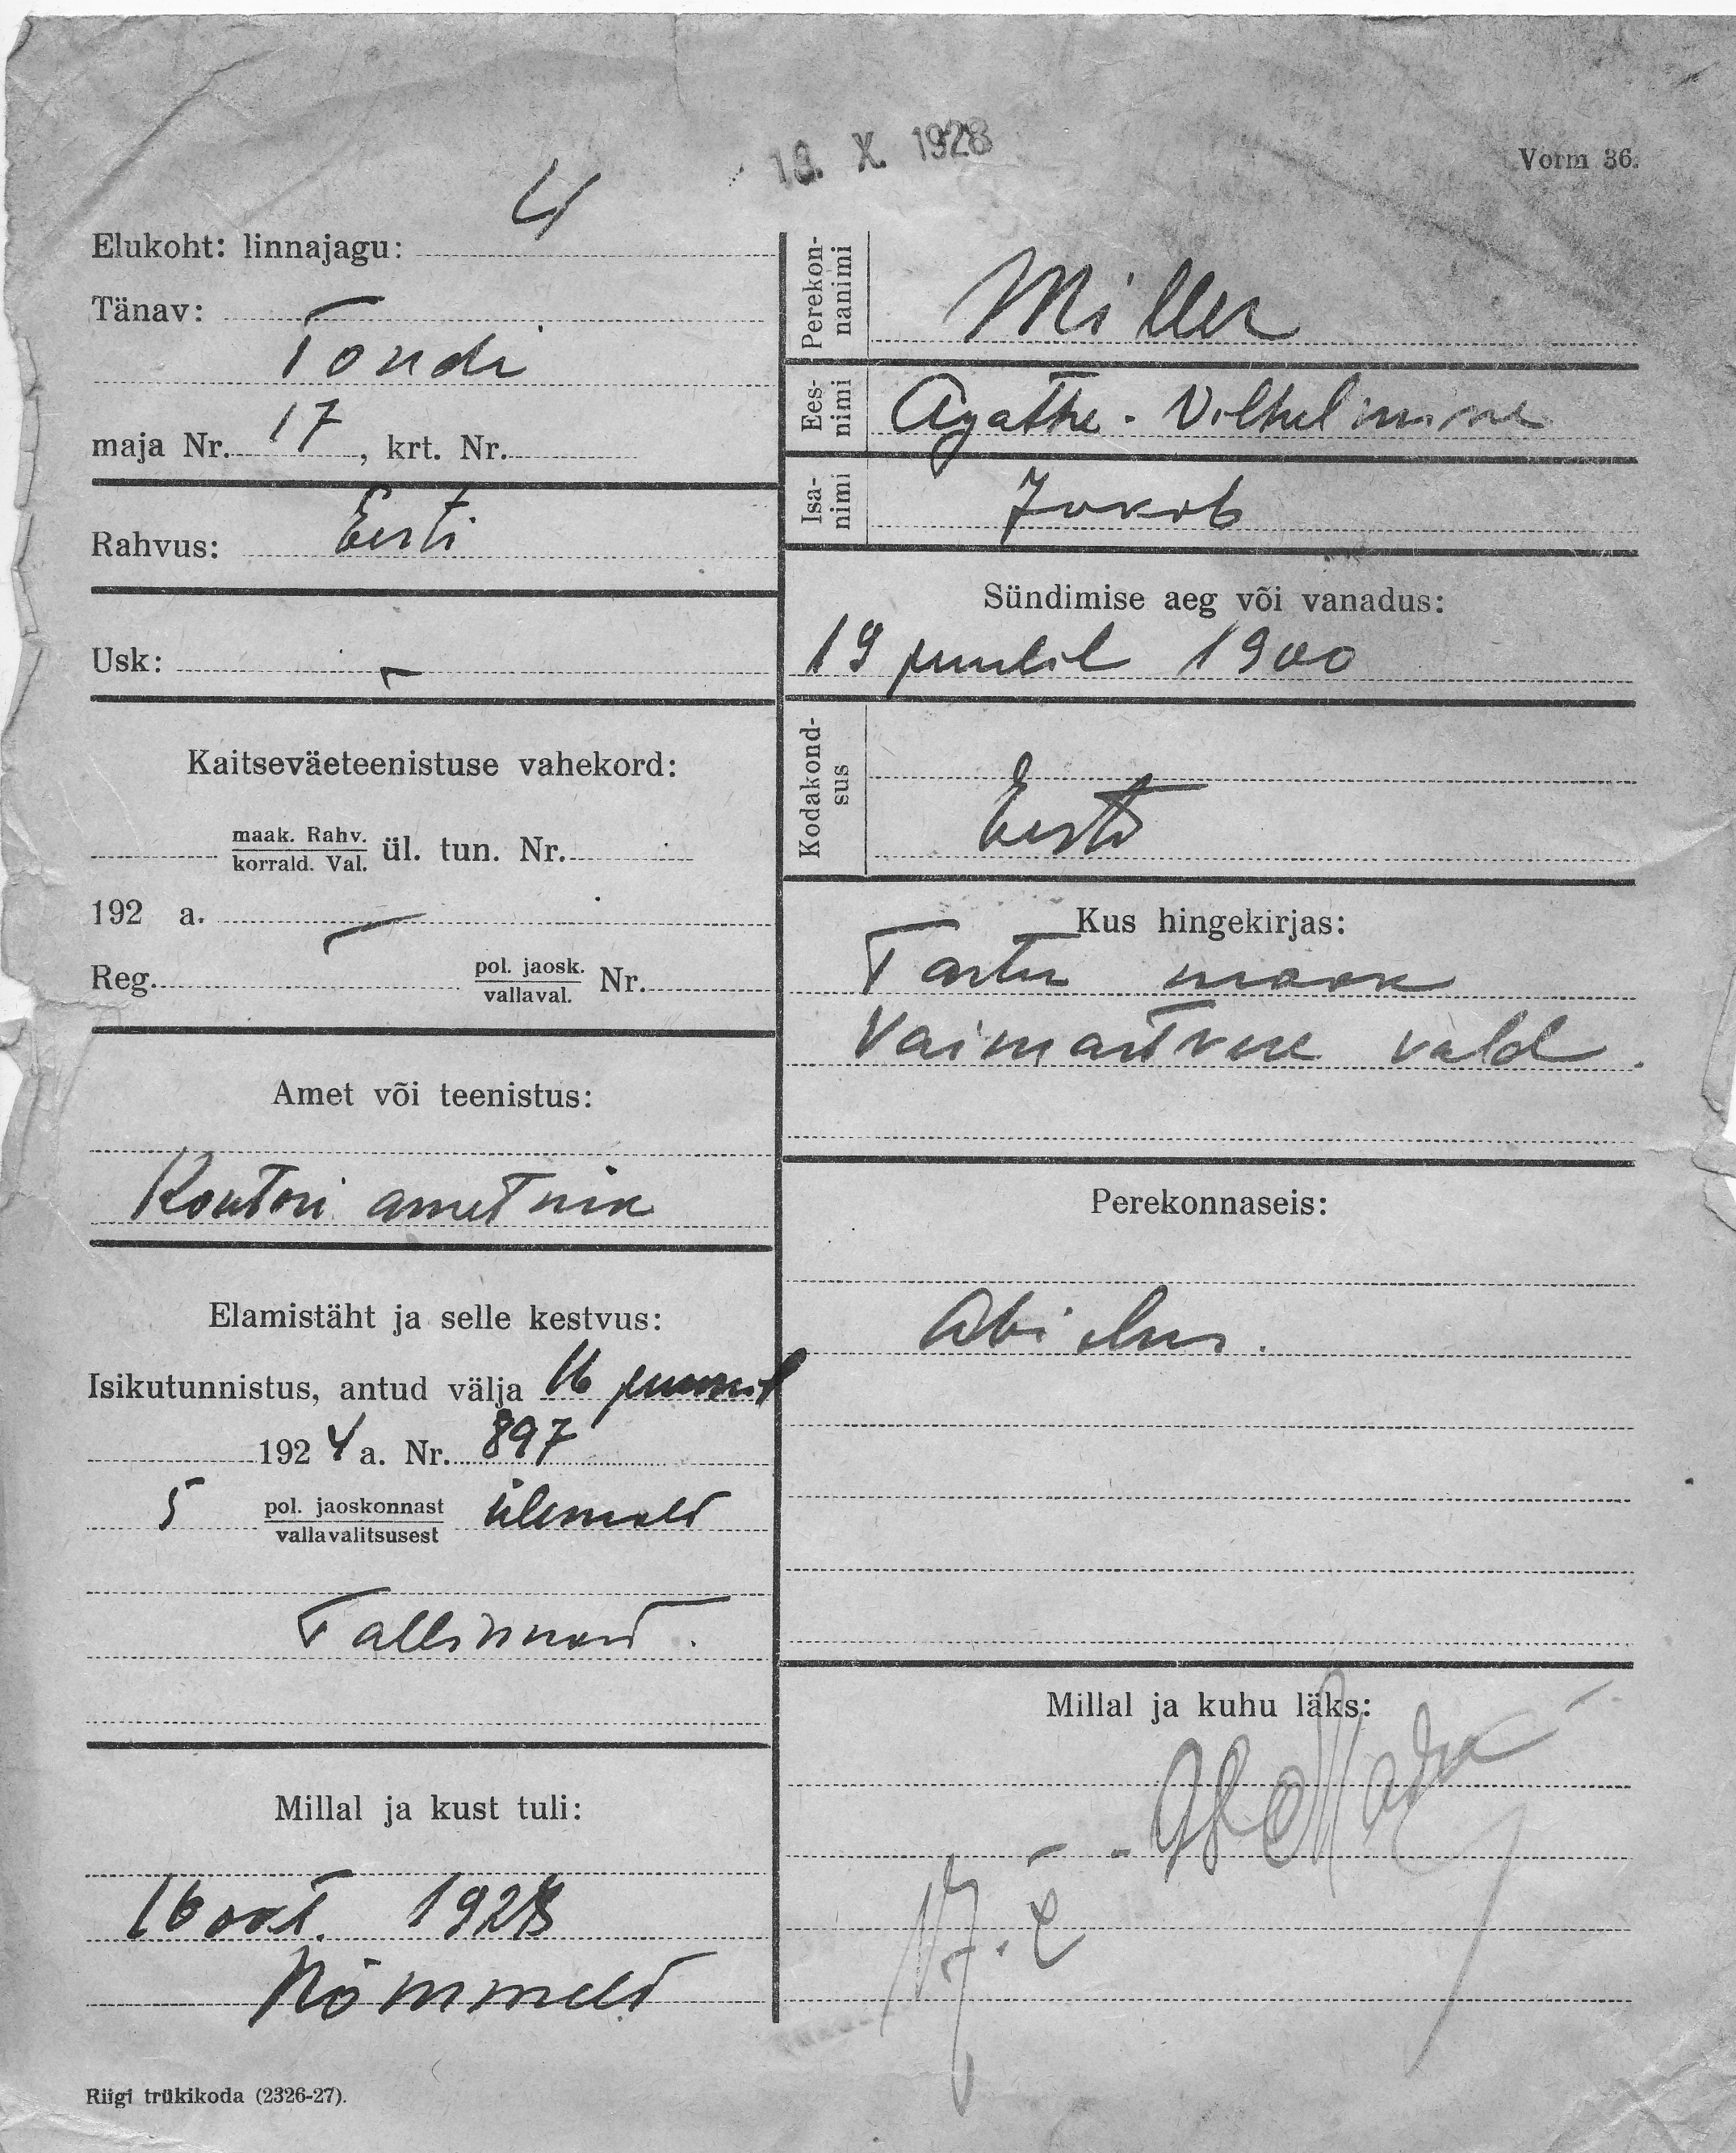 18. X. 1928
Vorm 36.
Elukoht: linnajagu: 4
Tänav:
Tondi
maja Nr. 17, krt. Nr.
Rahvus: Eesti
Usk: –
Kaitseväeteenistuse vahekord:
maak. Rahv.
korrald. Val. ül. tun. Nr.
192 a. –
Reg. pol. jaosk.
vallaval. Nr.
Amet või teenistus:
Kontori ametnik
Elamistäht ja selle kestvus:
Isikutunnistus, antud välja 16
1924 a. Nr. 897
5 pol. jaoskonnast
vallavalitsusest ülemalt
Tallinnast.
Millal ja kust tuli:
16 okt. 1928
Nõmmelt
Riigi trükikoda (2326-27).
Perekon-
nanimi
Miller
Ees-
nimi
Agathe - Vilhelmine
Isa-
nimi
Jakob
Sündimise aeg või vanadus:
19 juulil 1900
Kodakond-
sus
Eesti
Kus hingekirjas:
Tartu maak
Vaimastvere vald.
Perekonnaseis:
Abielus.
Millal ja kuhu läks:
17. X